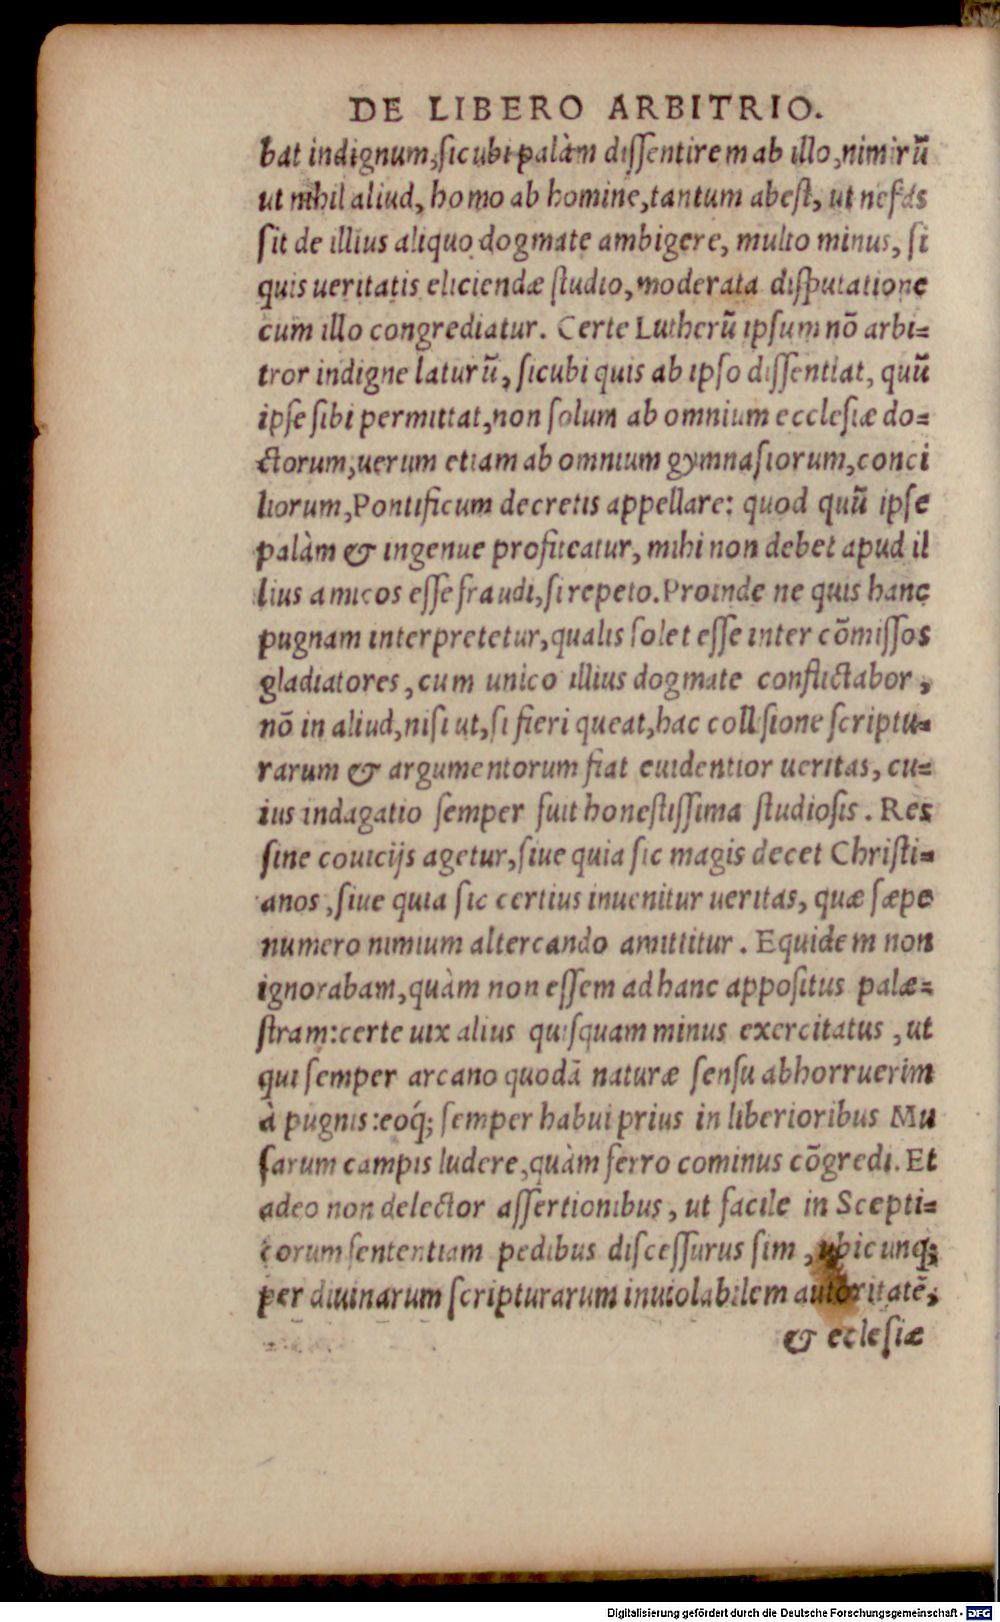 DE LIBERO ARBITRIO.
bat indignum, sicubi palàm dissentirem ab illo, nimirũ
ut nihil aliud, homo ab homine, tantum abest, ut nefas
sit de illius aliquo dogmate ambigere, multo minus, si
quis ueritatis eliciendæ studio, moderata disputatione
cum illo congrediatur. Certe Lutherũ ipsum nõ arbi=
tror indigne laturũ, sicubi quis ab ipso dissentiat, quũ
ipse sibi permittat, non solum ab omnium ecclesiæ do=
ctorum, uerum etiam ab omnium gymnasiorum, conci
liorum, Pontificum decretis appellare: quod quũ ipse
palàm & ingenue profiteatur, mihi non debet apud il
lius amicos esse fraudi, si repeto. Proinde ne quis hanc
pugnam interpretetur, qualis solet esse inter cõmissos
gladiatores, cum unico illius dogmate conflictabor,
nõ in aliud, nisi ut, si fieri queat, hac collisione scriptu=
rarum & argumentorum fiat euidentior ueritas, cu=
ius indagatio semper fuit honestissima studiosis. Res
sine couicijs agetur, siue quia sic magis decet Christi=
anos, siue quia sic certius inuenitur ueritas, quæ sæpe
numero nimium altercando amittitur. Equidem non
ignorabam, quàm non essem ad hanc appositus palæ=
stram: certe uix alius quisquam minus exercitatus, ut
qui semper arcano quodã naturæ sensu abhorruerim
à pugnis: eoq́; semper habui prius in liberioribus Mu
sarum campis ludere, quàm ferro cominus cõgredi. Et
adeo non delector assertionibus, ut facile in Scepti=
corum sententiam pedibus discessurus sim, ubicunq;
per diuinarum scripturarum inuiolabilem autoritatẽ,
& eclesiæ
Digitalisierung gefördert durch die Deutsche Forschungsgemeinschaft - DFG